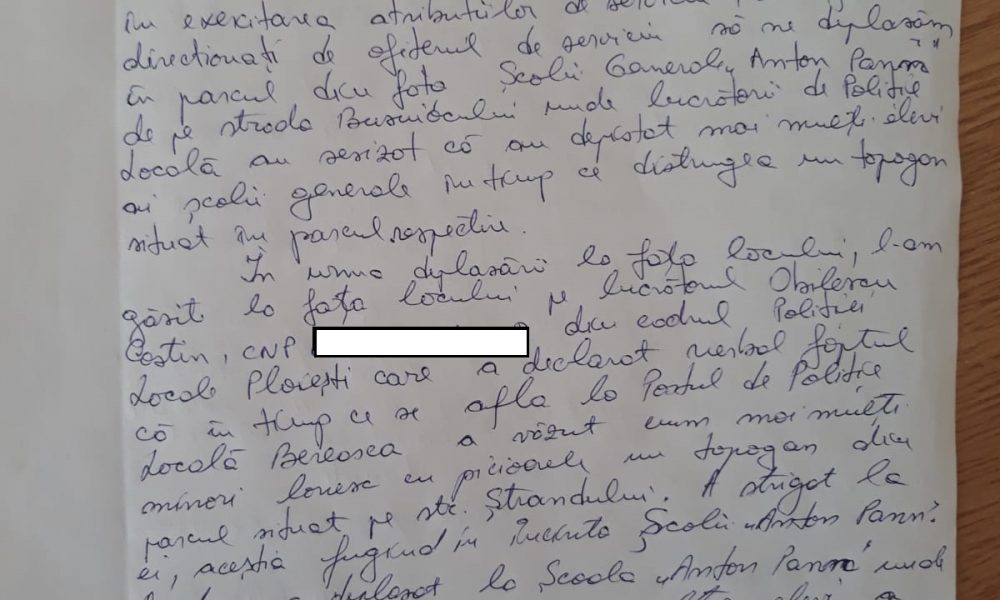 în exercitarea atribuțiilor de serviciu
direcționați de ofițerul de serviciu să ne deplasăm
în parcul din fața Școlii Generale „Anton Pann”
de pe strada Busuiocului unde lucrătorii de Poliție
Locală au sesizat că au depistat mai mulți elevi
ai școlii generale în timp ce distrugea un topogan
situat în parcul respectiv.
În urma deplasării la fața locului, l-am
găsit la fața locului pe lucrătorul Obilescu
Costin, CNP din cadrul Poliției
Locale Ploiești care a declarat verbal faptul
că în timp ce se afla la Postul de Poliție
Locală Bereasca a văzut cum mai mulți
minori lovesc cu picioarele un topogan din
parcul situat pe str. Ștrandului. A strigat la
ei, aceștia fugind în incinta Școlii „Anton Pann”.
deplasat la Școala „Anton Pann” unde